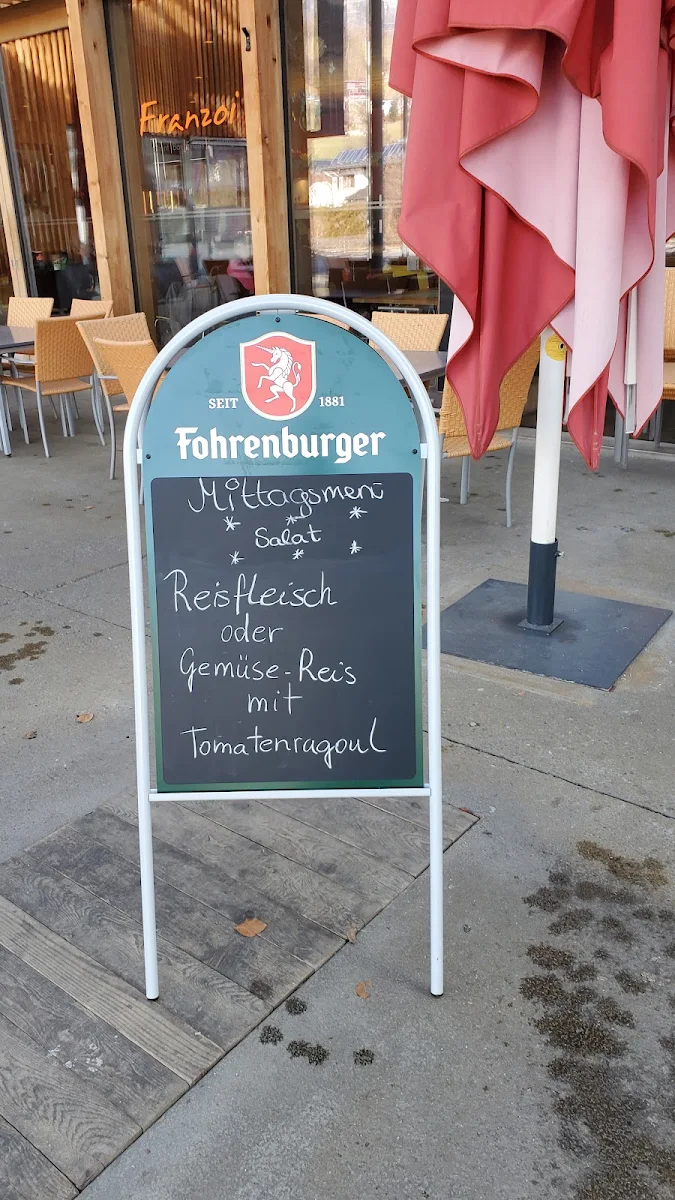 Franzoi
SEIT 1881
Fohrenburger
Mittagsmenü
Salat
Reisfleisch
oder
Gemüse-Reis
mit
Tomatenragout